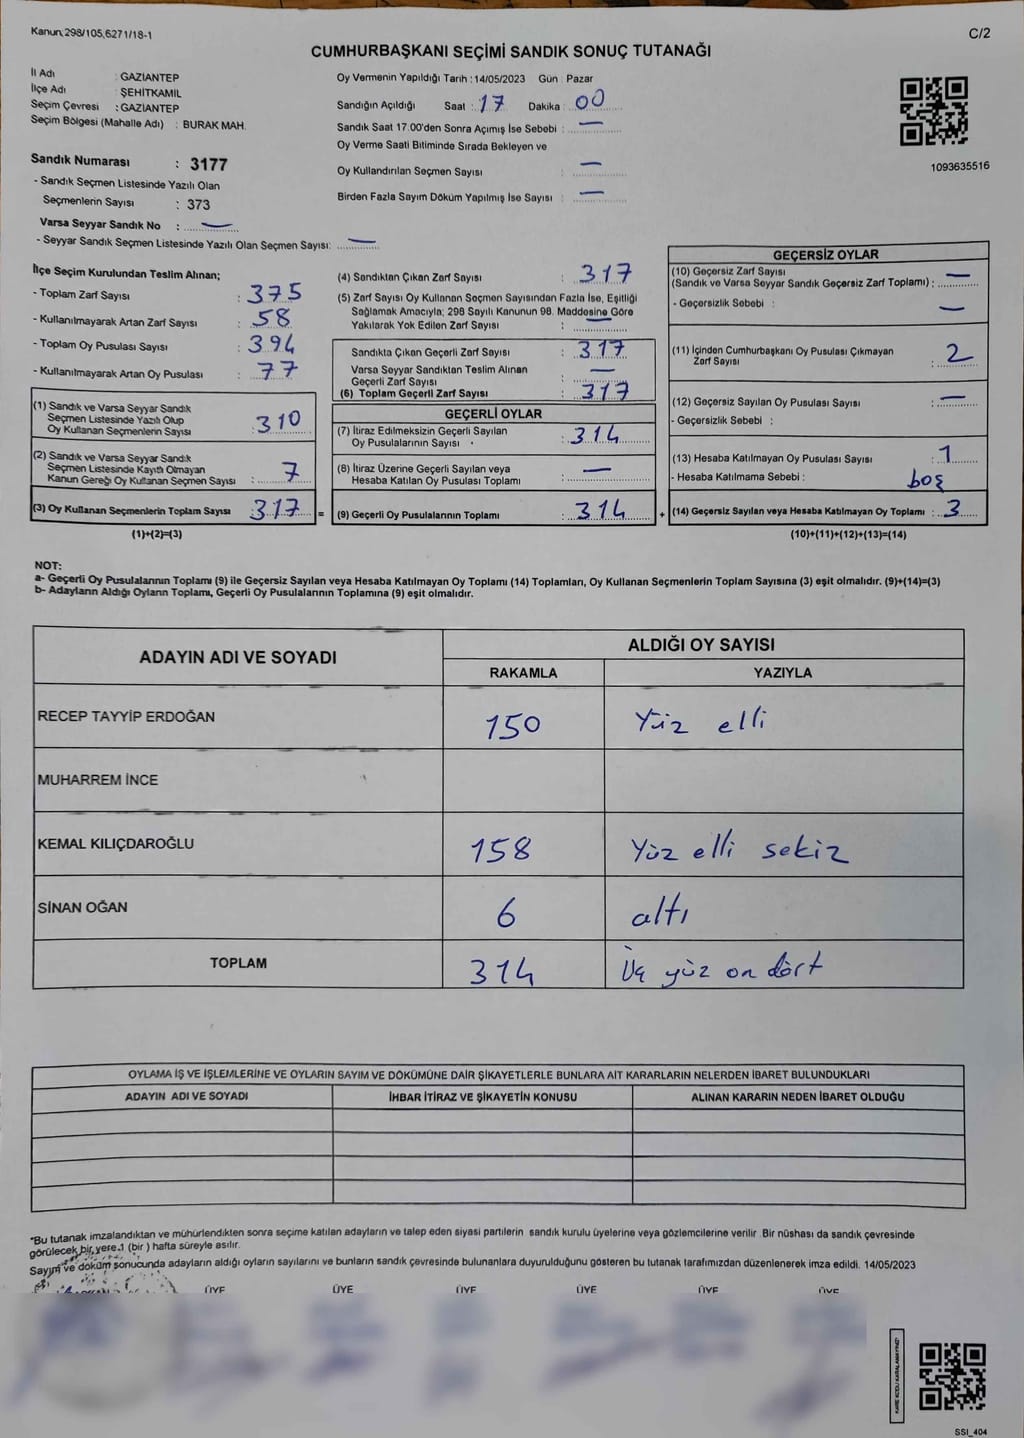 Kanun,298/105,6271/18-1
C/2
CUMHURBAŞKANI SEÇİMİ SANDIK SONUÇ TUTANAĞI
İl Adı : GAZİANTEP
İlçe Adı : ŞEHİTKAMİL
Seçim Çevresi : GAZİANTEP
Seçim Bölgesi (Mahalle Adı) : BURAK MAH.
Sandık Numarası : 3177
- Sandık Seçmen Listesinde Yazılı Olan
Seçmenlerin Sayısı : 373
Varsa Seyyar Sandık No : —
- Seyyar Sandık Seçmen Listesinde Yazılı Olan Seçmen Sayısı: —
Oy Vermenin Yapıldığı Tarih : 14/05/2023 Gün : Pazar
Sandığın Açıldığı Saat : 17 Dakika : 00
Sandık Saat 17:00'den Sonra Açımış İse Sebebi : —
Oy Verme Saati Bitiminde Sırada Bekleyen ve
Oy Kullandırılan Seçmen Sayısı : —
Birden Fazla Sayım Döküm Yapılmış İse Sayısı : —
1093635516
İlçe Seçim Kurulundan Teslim Alınan;
- Toplam Zarf Sayısı : 375
- Kullanılmayarak Artan Zarf Sayısı : 58
- Toplam Oy Pusulası Sayısı : 394
- Kullanılmayarak Artan Oy Pusulası : 77
(1) Sandık ve Varsa Seyyar Sandık
Seçmen Listesinde Yazılı Olup
Oy Kullanan Seçmenlerin Sayısı : 310
(2) Sandık ve Varsa Seyyar Sandık
Seçmen Listesinde Kayıtlı Olmayan
Kanun Gereği Oy Kullanan Seçmen Sayısı : 7
(3) Oy Kullanan Seçmenlerin Toplam Sayısı 317 =
(1)+(2)=(3)
(4) Sandıktan Çıkan Zarf Sayısı : 317
(5) Zarf Sayısı Oy Kullanan Seçmen Sayısından Fazla İse, Eşitliği
Sağlamak Amacıyla; 298 Sayılı Kanunun 98. Maddesine Göre
Yakılarak Yok Edilen Zarf Sayısı : —
Sandıkta Çıkan Geçerli Zarf Sayısı : 317
Varsa Seyyar Sandıktan Teslim Alınan
Geçerli Zarf Sayısı : —
(6) Toplam Geçerli Zarf Sayısı : 317
GEÇERLİ OYLAR
(7) İtiraz Edilmeksizin Geçerli Sayılan
Oy Pusulalarının Sayısı : 314
(8) İtiraz Üzerine Geçerli Sayılan veya
Hesaba Katılan Oy Pusulası Toplamı : —
(9) Geçerli Oy Pusulalarının Toplamı : 314 +
GEÇERSİZ OYLAR
(10) Geçersiz Zarf Sayısı
(Sandık ve Varsa Seyyar Sandık Geçersiz Zarf Toplamı) : —
- Geçersizlik Sebebi : —
(11) İçinden Cumhurbaşkanı Oy Pusulası Çıkmayan
Zarf Sayısı : 2
(12) Geçersiz Sayılan Oy Pusulası Sayısı : —
- Geçersizlik Sebebi :
(13) Hesaba Katılmayan Oy Pusulası Sayısı : 1
- Hesaba Katılmama Sebebi : boş
(14) Geçersiz Sayılan veya Hesaba Katılmayan Oy Toplamı : 3
(10)+(11)+(12)+(13)=(14)
NOT:
a- Geçerli Oy Pusulalarının Toplamı (9) ile Geçersiz Sayılan veya Hesaba Katılmayan Oy Toplamı (14) Toplamları, Oy Kullanan Seçmenlerin Toplam Sayısına (3) eşit olmalıdır. (9)+(14)=(3)
b- Adayların Aldığı Oyların Toplamı, Geçerli Oy Pusulalarının Toplamına (9) eşit olmalıdır.
ADAYIN ADI VE SOYADI
ALDIĞI OY SAYISI
RAKAMLA YAZIYLA
RECEP TAYYİP ERDOĞAN 150 Yüz elli
MUHARREM İNCE
KEMAL KILIÇDAROĞLU 158 Yüz elli sekiz
SİNAN OĞAN 6 altı
TOPLAM 314 Üç yüz on dört
OYLAMA İŞ VE İŞLEMLERİNE VE OYLARIN SAYIM VE DÖKÜMÜNE DAİR ŞİKAYETLERLE BUNLARA AİT KARARLARIN NELERDEN İBARET BULUNDUKLARI
ADAYIN ADI VE SOYADI İHBAR İTİRAZ VE ŞİKAYETİN KONUSU ALINAN KARARIN NEDEN İBARET OLDUĞU
*Bu tutanak imzalandıktan ve mühürlendikten sonra seçime katılan adayların ve talep eden siyasi partilerin sandık kurulu üyelerine veya gözlemcilerine verilir. Bir nüshası da sandık çevresinde
görülecek bir yere 1 (bir ) hafta süreyle asılır.
Sayım ve döküm sonucunda adayların aldığı oyların sayılarını ve bunların sandık çevresinde bulunanlara duyurulduğunu gösteren bu tutanak tarafımızdan düzenlenerek imza edildi. 14/05/2023
ÜYE ÜYE ÜYE ÜYE ÜYE ÜYE
SSI_404